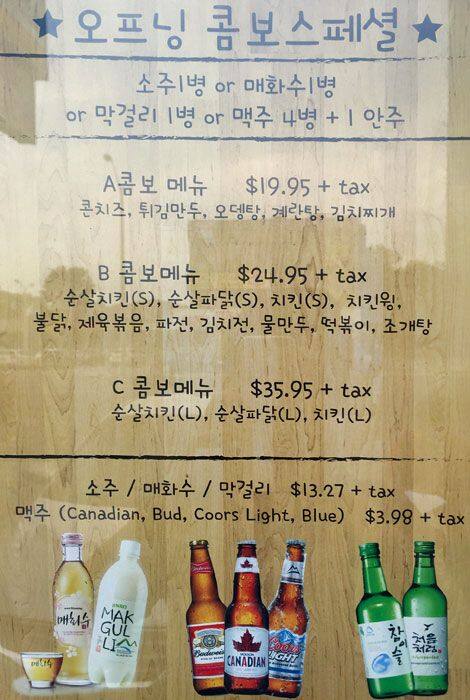 ★ 오프닝 콤보스페셜 ★
소주1병 or 매화수1병
or 막걸리 1병 or 맥주 4병 + 1 안주
A콤보 메뉴 $19.95 + tax
콘치즈, 튀김만두, 오뎅탕, 계란탕, 김치찌개
B 콤보메뉴 $24.95 + tax
순살치킨(S), 순살파닭(S), 치킨(S), 치킨윙,
불닭, 제육볶음, 파전, 김치전, 물만두, 떡볶이, 조개탕
C 콤보메뉴 $35.95 + tax
순살치킨(L), 순살파닭(L), 치킨(L)
소주 / 매화수 / 막걸리 $13.27 + tax
맥주 (Canadian, Bud, Coors Light, Blue) $3.98 + tax
매화수
MAK
GUL
LI
Budweiser
CANADIAN
Coors
LIGHT
참이슬
처음처럼